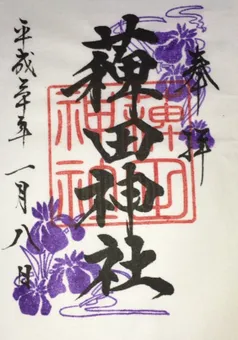 奉拝
薭田神社
薭田
神社
平成三十年一月八日